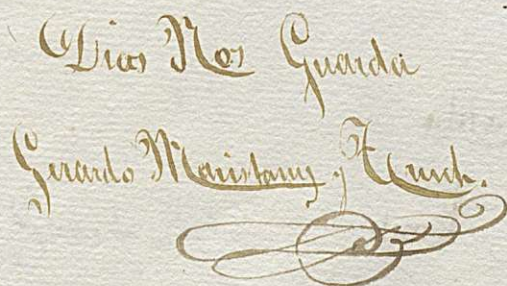 Dias Nos Guarda
Gerardo Maristany y